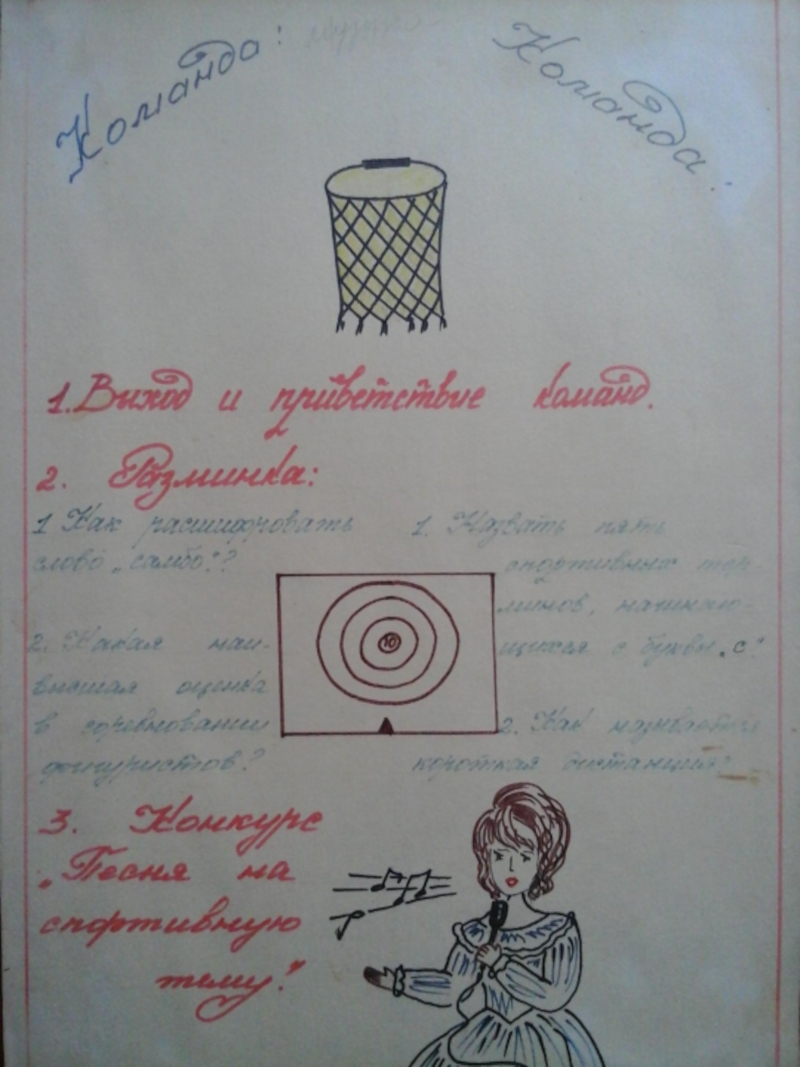 Команда:
Команда:
1. Выход и приветствие команд.
2. Разминка:
1 Как расшифровать
слово „самбо"?
2. Какая наи-
высшая оценка
в соревновании
фигуристов?
1. Назвать пять
спортивных тер
минов, начинаю-
щихся с буквы „с"
10
2. Как называется
короткая дистанция?
3. Конкурс
„Песня на
спортивную
тему."